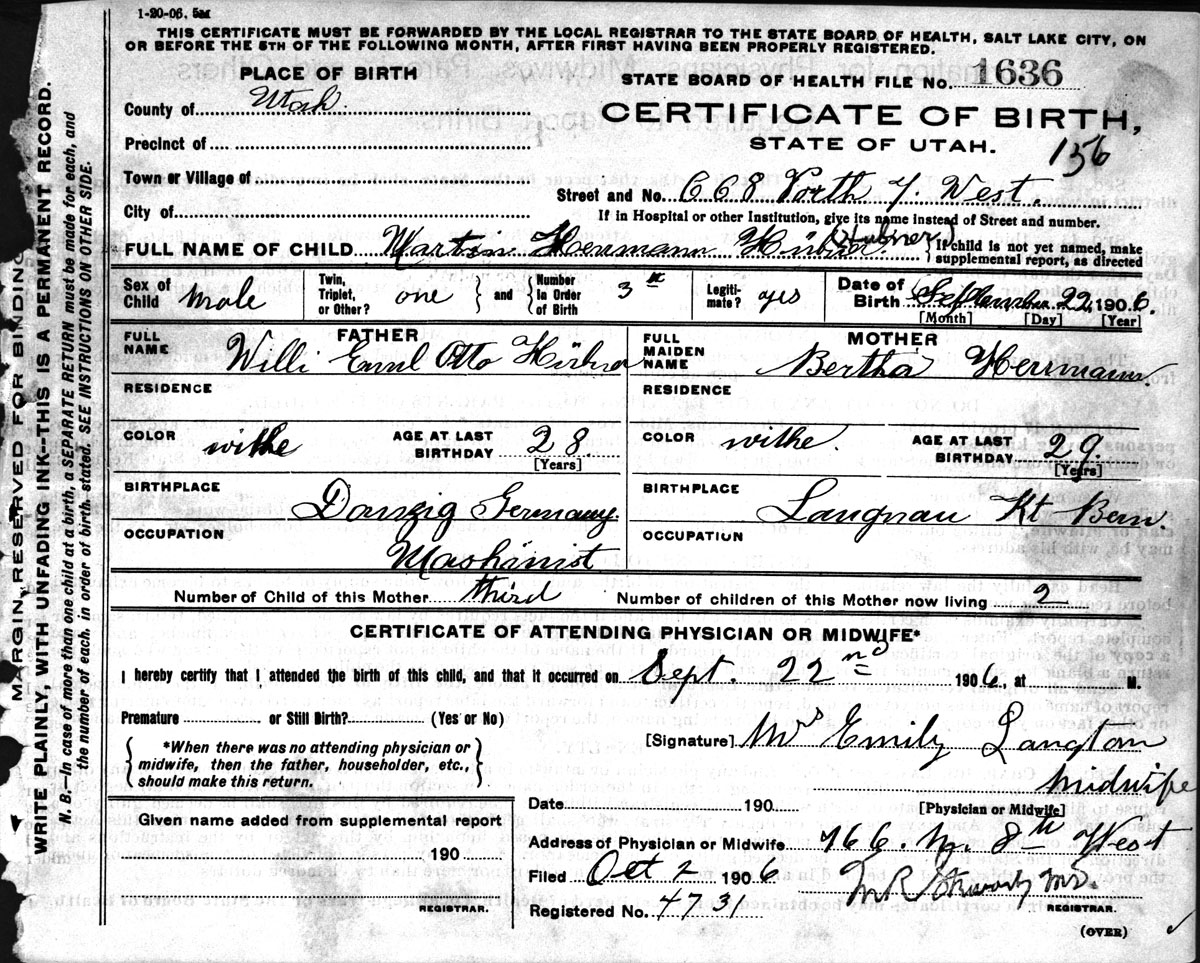 1-20-06, 5M
THIS CERTIFICATE MUST BE FORWARDED BY THE LOCAL REGISTRAR TO THE STATE BOARD OF HEALTH, SALT LAKE CITY, ON
OR BEFORE THE 5TH OF THE FOLLOWING MONTH, AFTER FIRST HAVING BEEN PROPERLY REGISTERED.
PLACE OF BIRTH
STATE BOARD OF HEALTH FILE No. 1636
County of Utah
CERTIFICATE OF BIRTH,
Precinct of
STATE OF UTAH.
156
Town or Village of
Street and No. 668 North 7. West.
City of
If in Hospital or other Institution, give its name instead of Street and number.
FULL NAME OF CHILD Martin Herrmann Hübner (Hubner) { If child is not yet named, make
supplemental report, as directed
Sex of Child male
Twin, Triplet, or Other? one } and { Number In Order of Birth 3
Legiti- mate? yes
Date of Birth September 22, 1906.
[Month] [Day] [Year]
FATHER
MOTHER
FULL NAME Willi Emil Otto Hübner
FULL MAIDEN NAME Bertha Herrmann.
RESIDENCE
RESIDENCE
COLOR withe AGE AT LAST BIRTHDAY 28 [Years]
COLOR withe. AGE AT LAST BIRTHDAY 29. [Years]
BIRTHPLACE Danzig Germany.
BIRTHPLACE Langnau Kt Bern.
OCCUPATION Mashinist
OCCUPATION
Number of Child of this Mother third Number of children of this Mother now living 2
CERTIFICATE OF ATTENDING PHYSICIAN OR MIDWIFE*
I hereby certify that I attended the birth of this child, and that it occurred on Sept. 22nd 1906, at M.
Premature or Still Birth? (Yes or No)
{ *When there was no attending physician or
midwife, then the father, householder, etc.,
should make this return. }
[Signature] Mrs Emily Langton
Midwife
[Physician or Midwife]
Date 190
Given name added from supplemental report
190
REGISTRAR.
Address of Physician or Midwife 466. N. 8th West
Filed Oct 2 1906
REGISTRAR.
Registered No. 4731
(OVER)
MARGIN RESERVED FOR BINDING
WRITE PLAINLY, WITH UNFADING INK--THIS IS A PERMANENT RECORD.
N. B.--In case of more than one child at a birth, a SEPARATE RETURN must be made for each, and
the number of each, in order of birth, stated. SEE INSTRUCTIONS ON OTHER SIDE.